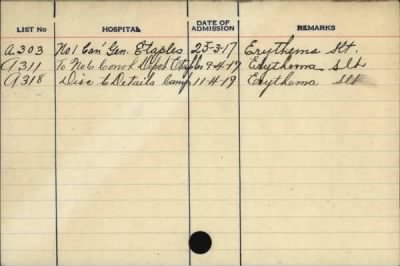 LIST No HOSPITAL DATE OF ADMISSION REMARKS
A303 No 1 Can' Gen. Etaples 25-3-17 Erythema Slt.
A311 To No 6 Conv'l Depot Etaples 9-4-17 Erythema Slt
A318 Disc to Details Camp 11-4-19 Erythema Slt